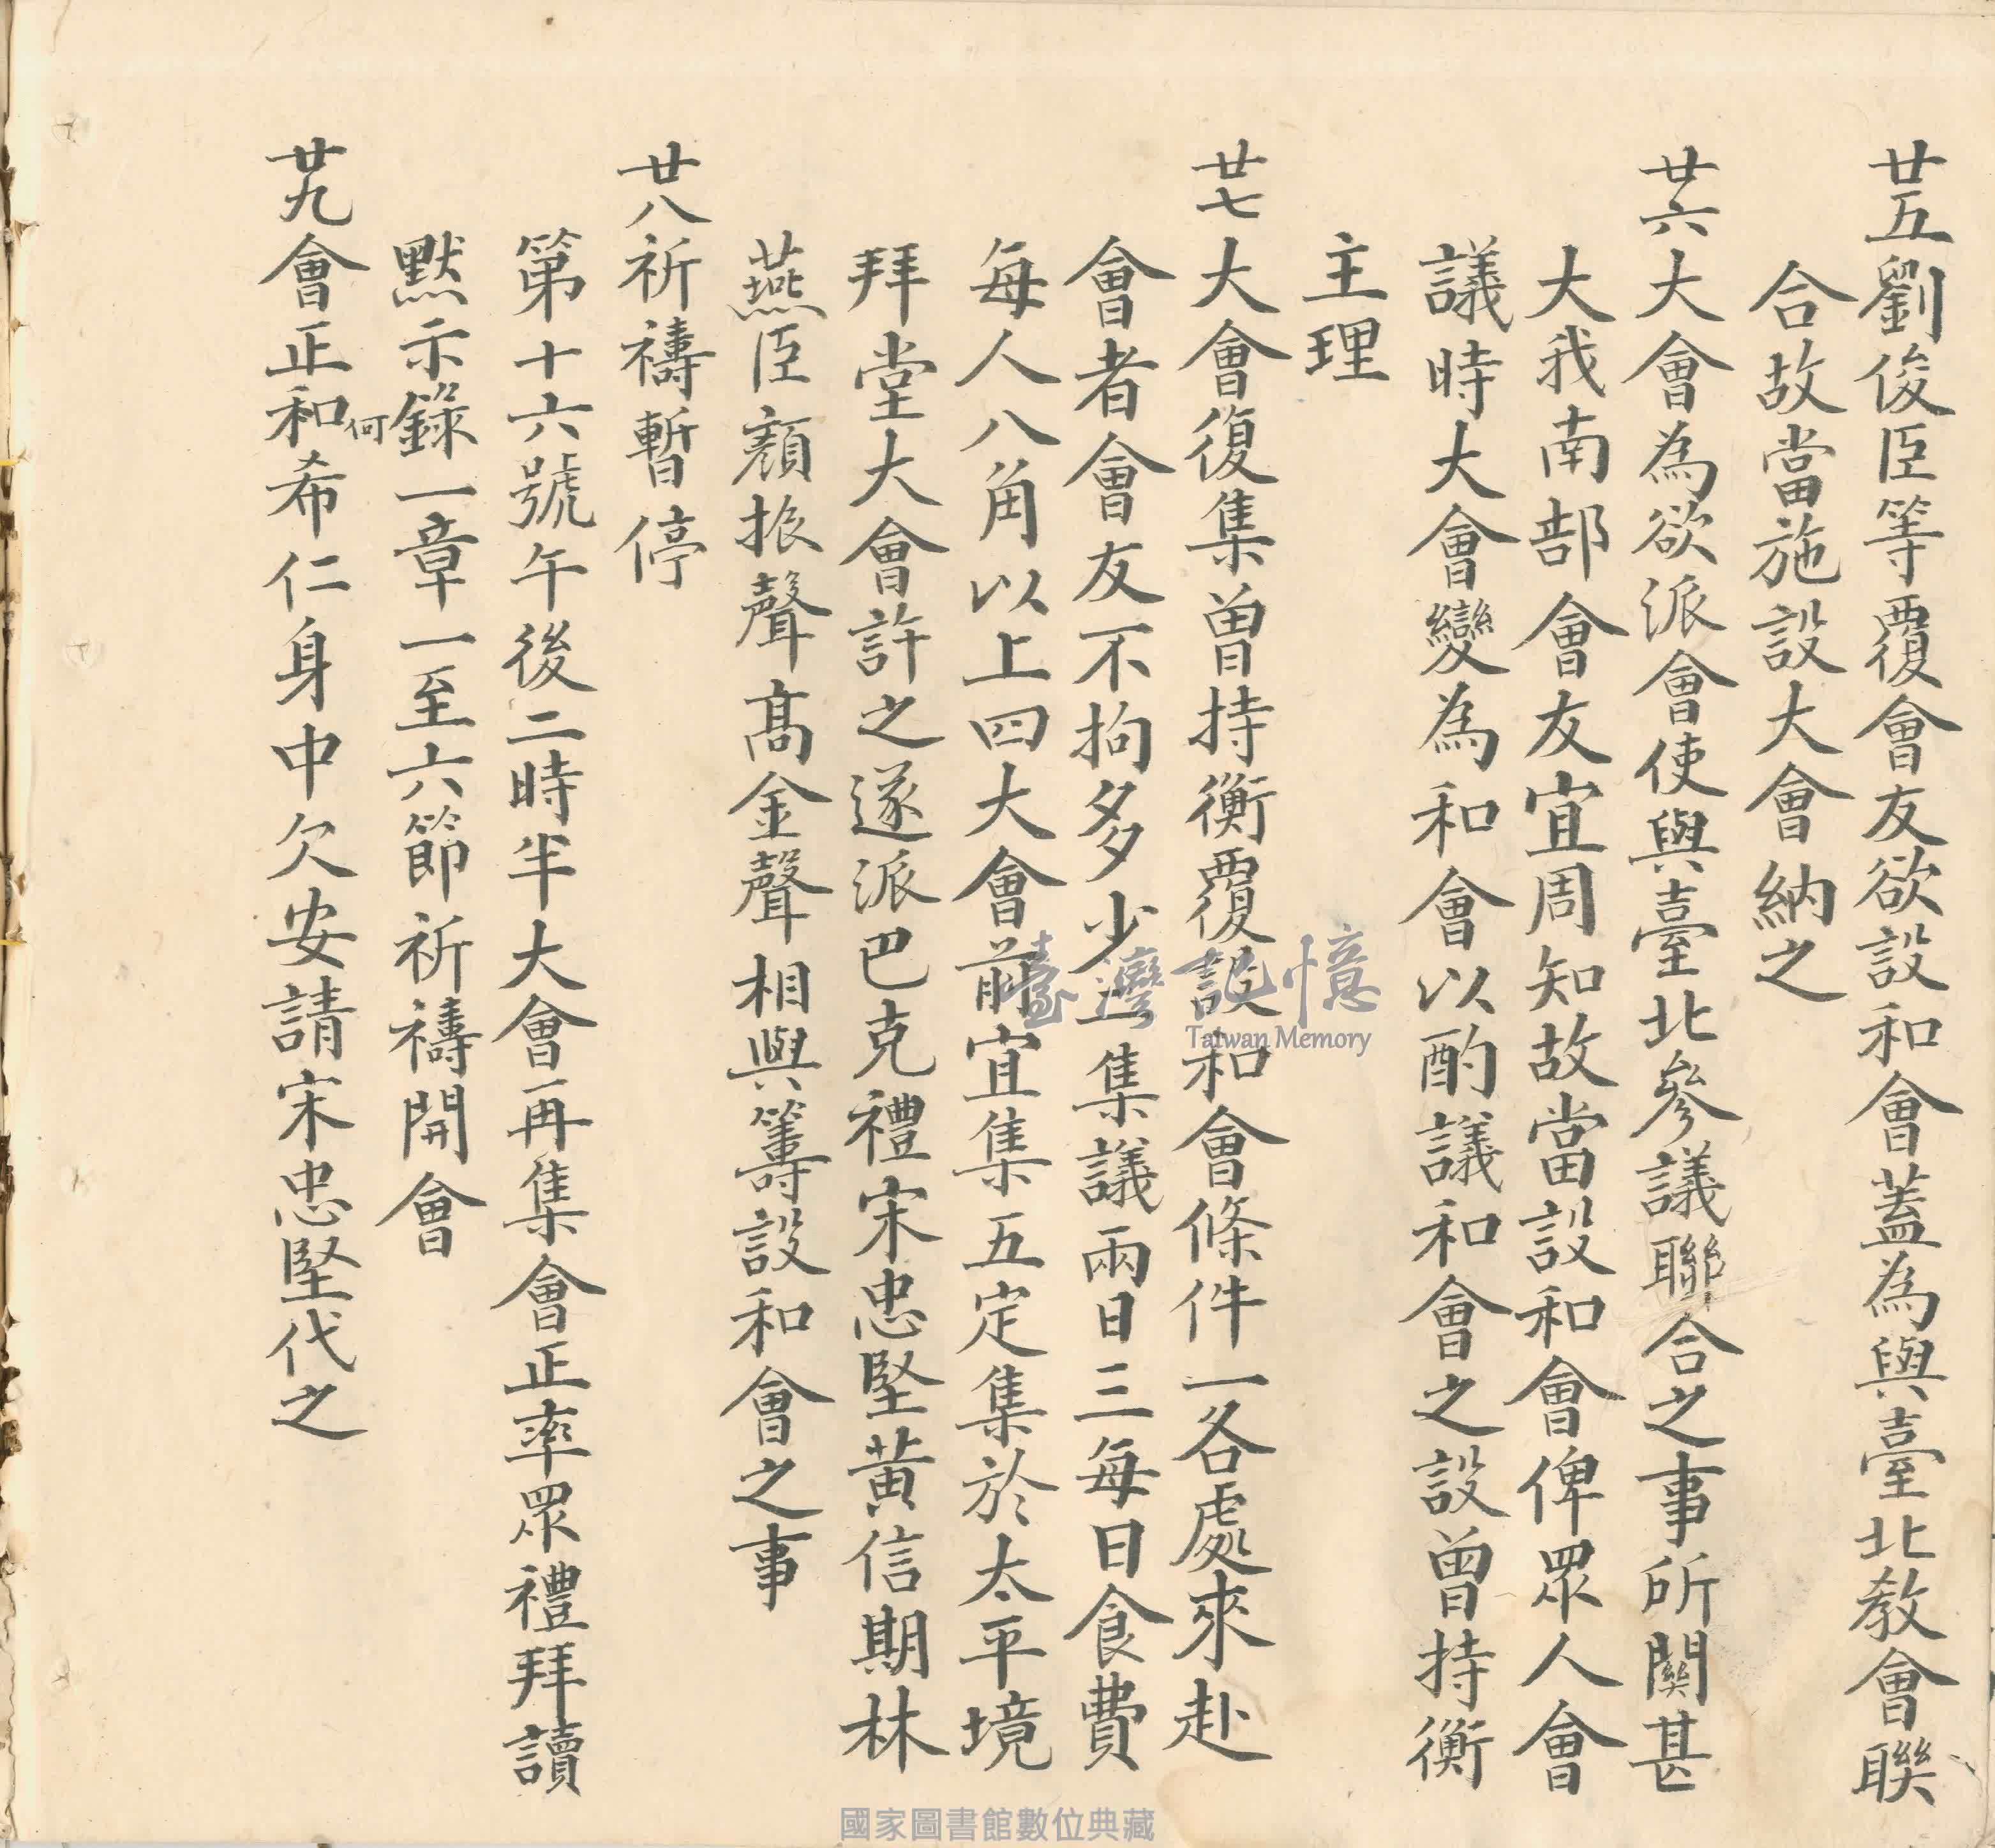 廿五劉俊臣等覆會友欲設和會蓋為與臺北教會聯
合故當施設大會納之
廿六大會為欲派會使與臺北參議聯合之事所關甚
大我南部會友宜周知故當設和會俾眾人會
議時大會變為和會以酌議和會之設曾持衡
主理
廿七大會復集曾持衡覆設和會條件一各處來赴
會者會友不拘多少二集議兩日三每日食費
每人八角以上四大會前宜集五定集於太平境
拜堂大會許之遂派巴克禮宋忠堅黃信期林
燕臣顏振聲高金聲相與籌設和會之事
廿八祈禱暫停
第十六號午後二時半大會再集會正率眾禮拜讀
默示錄一章一至六節祈禱開會
廿九會正和何希仁身中欠安請宋忠堅代之
臺灣記憶
Taiwan Memory
國家圖書館數位典藏